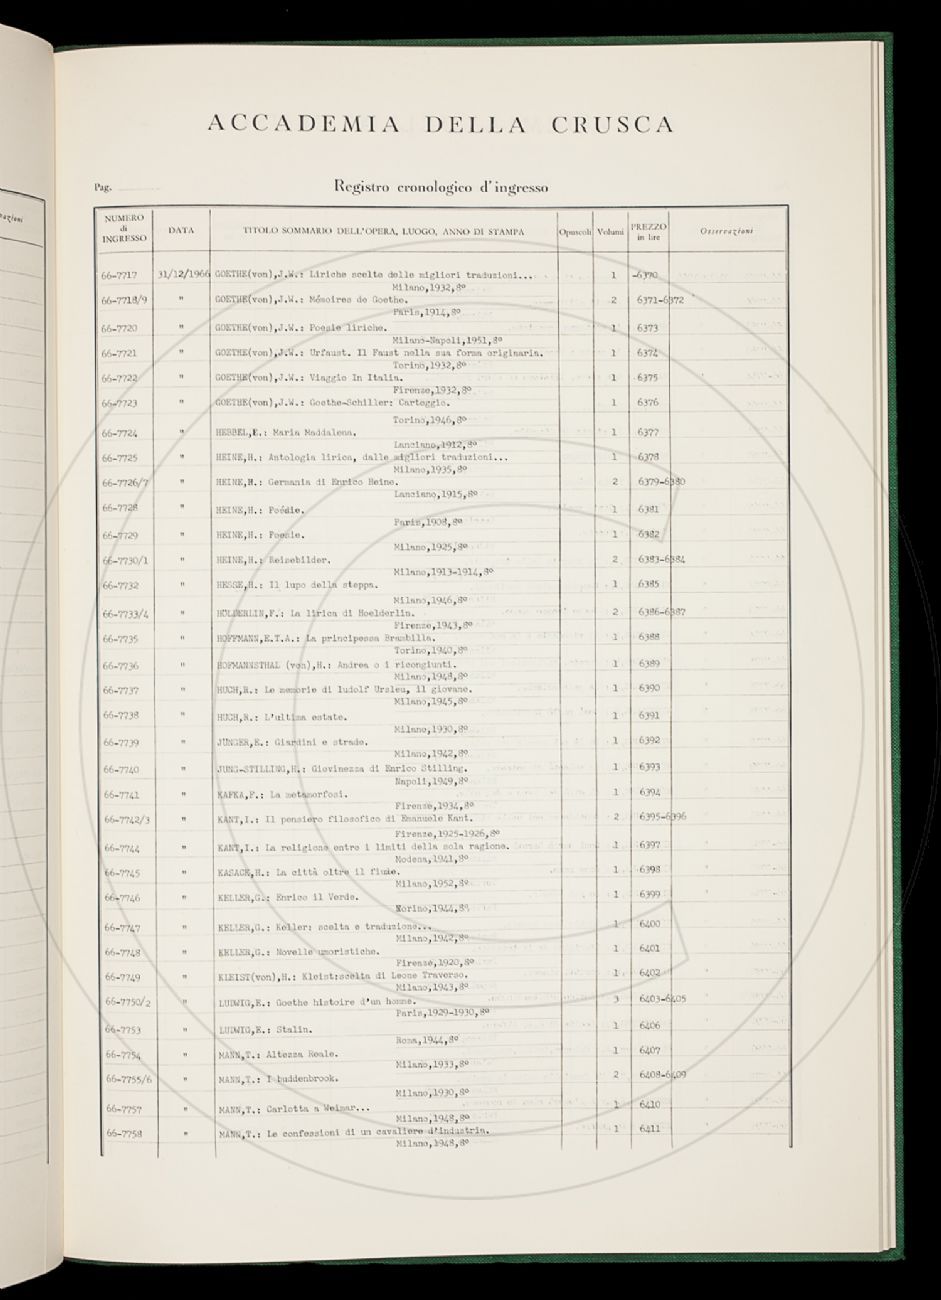 azioni
ACCADEMIA DELLA CRUSCA
Pag.
Registro cronologico d'ingresso
NUMERO di INGRESSO DATA TITOLO SOMMARIO DELL'OPERA, LUOGO, ANNO DI STAMPA Opuscoli Volumi PREZZO in lire Osservazioni
66-7717 31/12/1966 GOETHE(von),J.W.: Liriche scelte delle migliori traduzioni... 1 -6370
Milano,1932,8º
66-7718/9 " GOETHE(von),J.W.: Mémoires de Goethe. 2 6371-6372
Paris,1914,8º
66-7720 " GOETHE(von),J.W.: Poesie liriche. 1 6373
Milano-Napoli,1951,8º
66-7721 " GOETHE(von),J.W.: Urfaust. Il Faust nella sua forma originaria. 1 6374
Torino,1932,8º
66-7722 " GOETHE(von),J.W.: Viaggio In Italia. 1 6375
Firenze,1932,8º
66-7723 " GOETHE(von),J.W.: Goethe-Schiller: Carteggio. 1 6376
Torino,1946,8º
66-7724 " HEBBEL,E.: Maria Maddalena. 1 6377
Lanciano,1912,8º
66-7725 " HEINE,H.: Antologia lirica, dalle migliori traduzioni... 1 6378
Milano,1935,8º
66-7726/7 " HEINE,H.: Germania di Enrico Heine. 2 6379-6380
Lanciano,1915,8º
66-7728 " HEINE,H.: Poésie. 1 6381
Paris,1908,8º
66-7729 " HEINE,H.: Poesie. 1 6382
Milano,1925,8º
66-7730/1 " HEINE,H.: Reisebilder. 2 6383-6384
Milano,1913-1914,8º
66-7732 " HESSE,H.: Il lupo della steppa. 1 6385
Milano,1946,8º
66-7733/4 " HÖLDERLIN,F.: La lirica di Hoelderlin. 2 6386-6387
Firenze,1943,8º
66-7735 " HOFFMANN,E.T.A.: La principessa Brambilla. 1 6388
Torino,1940,8º
66-7736 " HOFMANNSTHAL (von),H.: Andrea o i ricongiunti. 1 6389
Milano,1948,8º
66-7737 " HUCH,R.: Le memorie di ludolf Ursleu, il giovane. 1 6390
Milano,1945,8º
66-7738 " HUCH,R.: L'ultima estate. 1 6391
Milano,1930,8º
66-7739 " JUNGER,E.: Giardini e strade. 1 6392
Milano,1942,8º
66-7740 " JUNG-STILLING,H.: Giovinezza di Enrico Stilling. 1 6393
Napoli,1949,8º
66-7741 " KAFKA,F.: La metamorfosi. 1 6394
Firenze,1934,8º
66-7742/3 " KANT,I.: Il pensiero filosofico di Emanuele Kant. 2 6395-6396
Firenze,1925-1926,8º
66-7744 " KANT,I.: La religione entro i limiti della sola ragione. 1 6397
Modena,1941,8º
66-7745 " KASACK,H.: La città oltre il fiume. 1 6398
Milano,1952,8º
66-7746 " KELLER,G.: Enrico il Verde. 1 6399
Torino,1944,8º
66-7747 " KELLER,G.: Keller: scelta e traduzione... 1 6400
Milano,1942,8º
66-7748 " KELLER,G.: Novelle umoristiche. 1 6401
Firenze,1920,8º
66-7749 " KLEIST(von),H.: Kleist:scelta di Leone Traverso. 1 6402
Milano,1943,8º
66-7750/2 " LUDWIG,E.: Goethe histoire d'un homme. 3 6403-6405
Paris,1929-1930,8º
66-7753 " LUDWIG,E.: Stalin. 1 6406
Roma,1944,8º
66-7754 " MANN,T.: Altezza Reale. 1 6407
Milano,1933,8º
66-7755/6 " MANN,T.: I buddenbrook. 2 6408-6409
Milano,1930,8º
66-7757 " MANN,T.: Carlotta a Weimar... 1 6410
Milano,1948,8º
66-7758 " MANN,T.: Le confessioni di un cavaliere d'industria. 1 6411
Milano,1948,8º